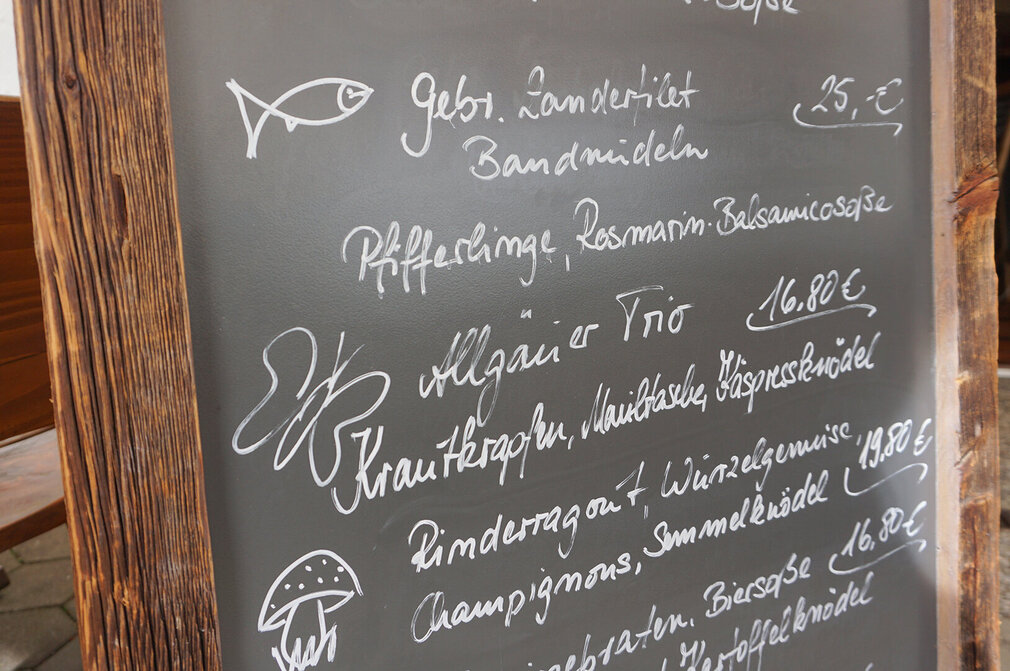 soße
Gebr. Zanderfilet 25,-€
Bandnudeln
Pfifferlinge, Rosmarin-Balsamicosoße
Allgäuer Trio 16,80€
Krautkrapfen, Maultasche, Käspressknödel
Rinderragout, Wurzelgemüse,
Champignons, Semmelknödel 19,80€
braten, Biersoße 16,80€
Kartoffelknödel